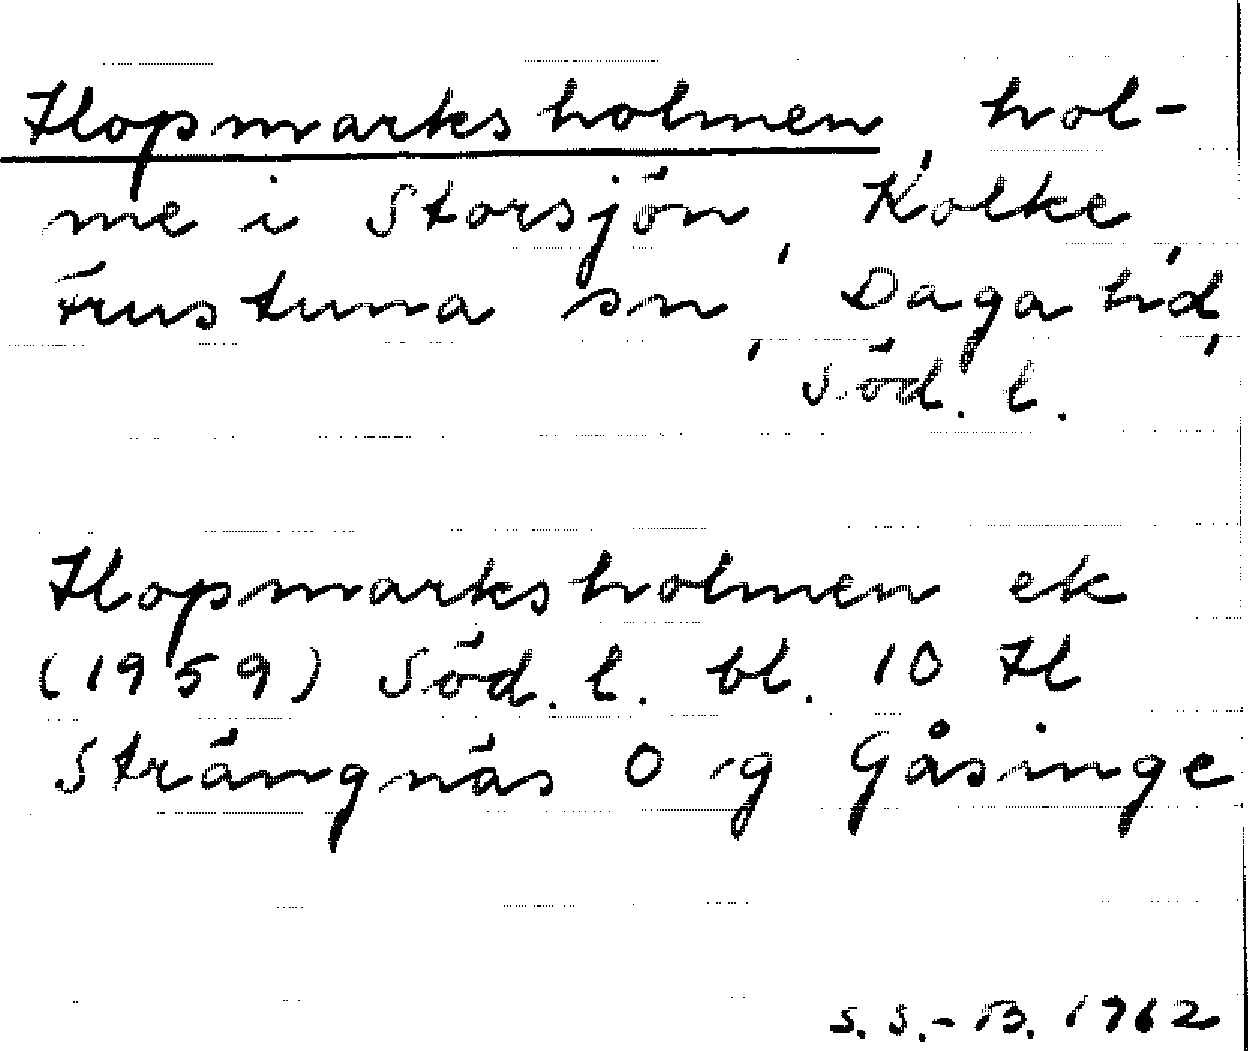 Hopmarksholmen, hol-
me i Storsjön, Kolke,
Frustuna sn, Daga hd,
Söd. l.
Hopmarksholmen ek
(1959) Söd. l. bl. 10 H
Strängnäs 0 9 g Gåsinge
S. S.-B. 1962